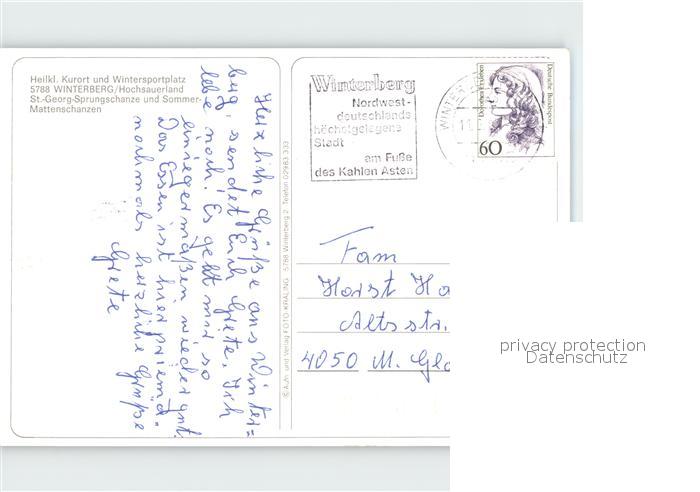 Heilkl. Kurort und Wintersportplatz
5788 WINTERBERG/Hochsauerland
St.-Georg-Sprungschanze und Sommer-
Mattenschanzen
Herzliche Grüße aus Winter=
berg, sendet Euch Grete. Ich
lebe noch! Es geht mir so
einigermaßen wieder gut.
Das Essen ist hier prima.
nochmals herzliche Grüße
Grete
© Aufn. und Verlag FOTO-KRALING 5788 Winterberg 2 Telefon 02983 333
Winterberg
Nordwest-
deutschlands
höchstgelegene
Stadt
am Fuße
des Kahlen Asten
WINTER
Dorothea Erxleben
Deutsche Bundespost
60
Fam
Horst Ha
Altsstr.
4050 M. Gla
privacy protection
Datenschutz